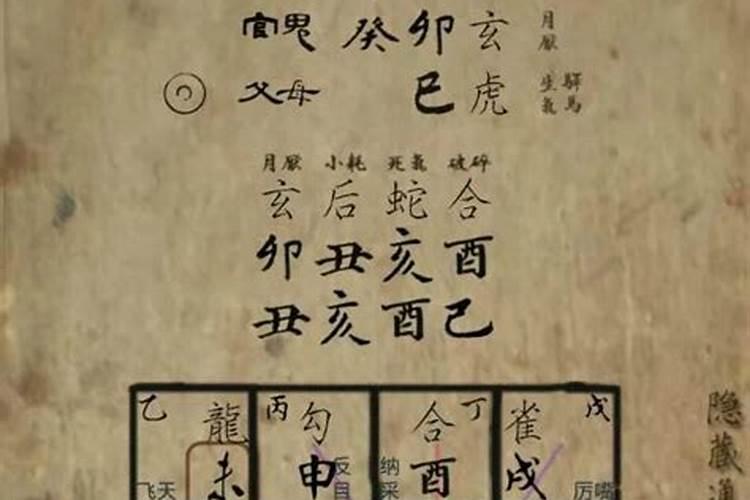 官鬼 癸卯玄 月厭
父母 巳虎 生氣 驛馬
月厭 小耗 死氣 破碎
玄后蛇合
卯丑亥酉
丑亥酉己
乙 龍 丙 勾 合 丁 雀 戌
未 飞天 申 反目 纳采 酉 戌 厉嘴
隐藏通